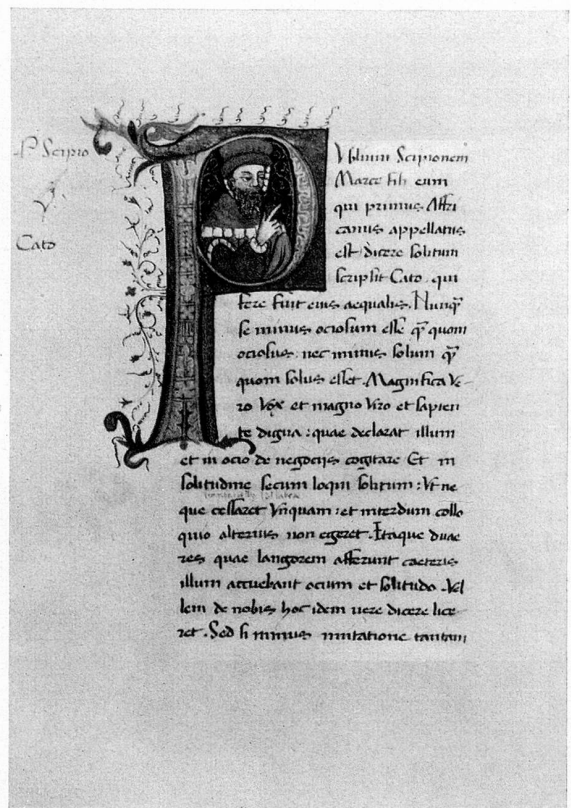 P. Scipio
Cato
PUblium Scipionem
Marce fili eum
qui primus Affri
canus appellatus
est: dicere solitum
scripsit Cato. qui
fere fuit eius aequalis. Nunq̃
se minus ociosum esse q̃ quom
ociosus: nec minus solum q̃
quom solus esset. Magnifica Ve-
ro Vox et magno Viro et sapien
te digna: quae declarat illum
et in ocio de negocijs cogitare Et in
solitudine secum loqui solitum: Vt ne
que cessaret Vnquam: et interdum collo
quio alterius non egeret. Itaque duae
res quae langorem afferunt caeteris
illum accuebant ocium et solitudo. Vel
lem de nobis hoc idem uere dicere lice
ret. Sed si minus imitatione tantam